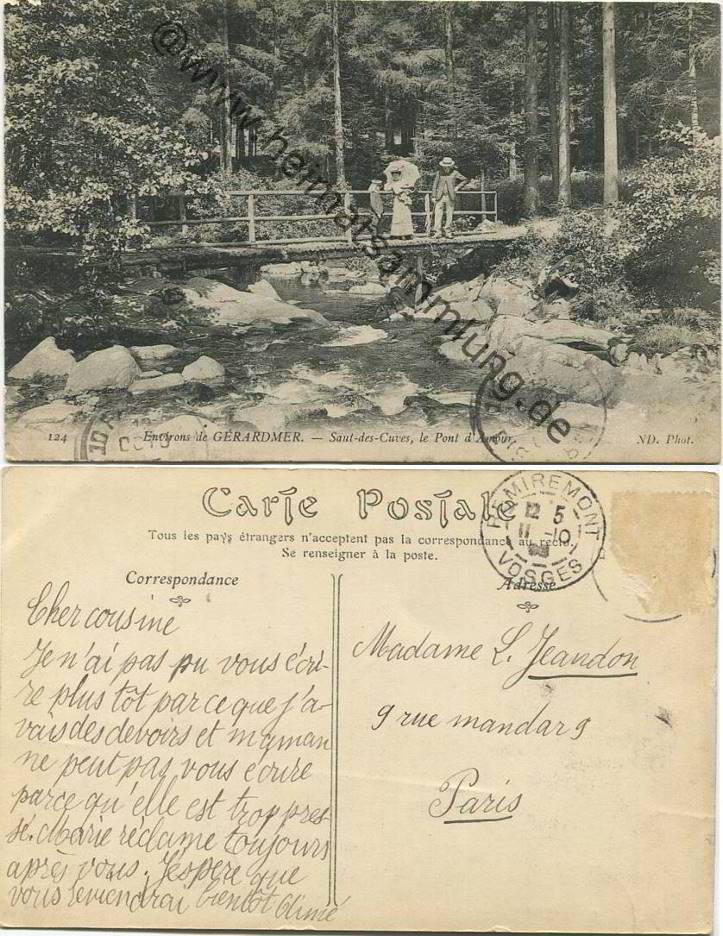 @www.heimatsammlung.de
124 Environs de GÉRARDMER. — Saut-des-Cuves, le Pont d'Amour. ND. Phot.
Carte Postale
Tous les pays étrangers n'acceptent pas la correspondance au recto.
Se renseigner à la poste.
Correspondance
Adresse
REMIREMONT
12 5
11 -10
VOSGES
Cher cousine
Je n'ai pas pu vous écri-
re plus tôt parce que j'a-
vais des devoirs et maman
ne peut pas vous écrire
parce qu'elle est trop pres
sé. Marie réclame toujours
après vous. J'espère que
vous reviendrai bientôt Aimé
Madame L. Jeandon
9 rue mandar 9
Paris